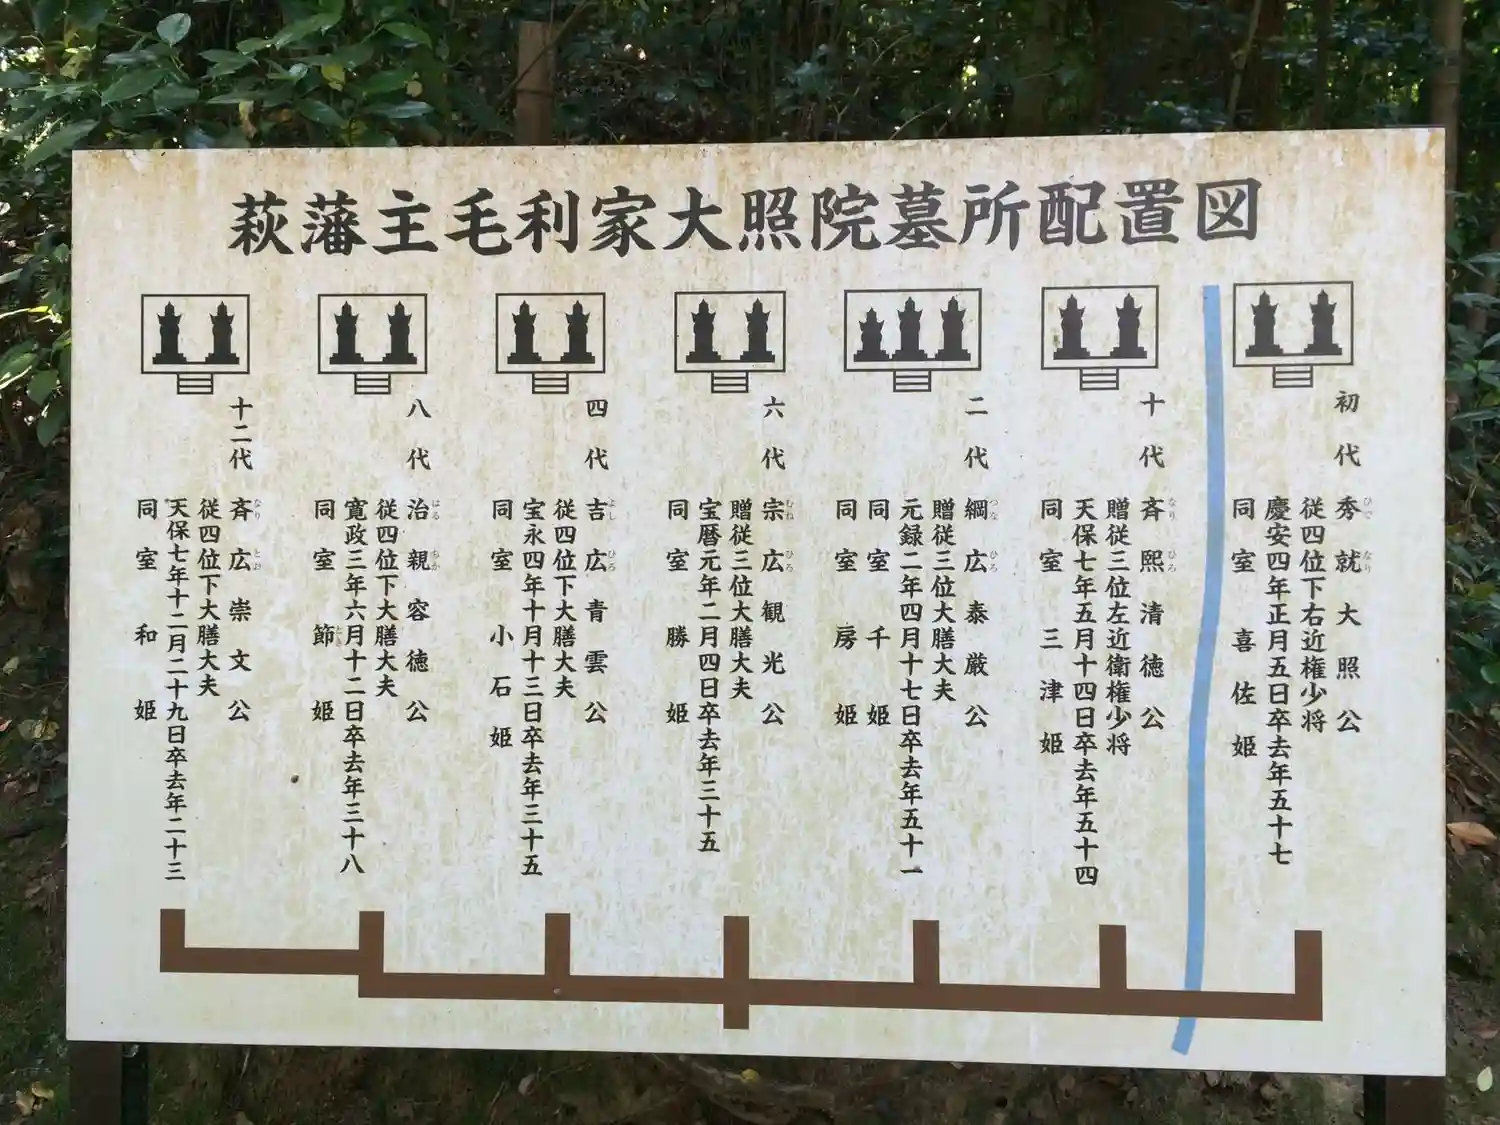 萩藩主毛利家大照院墓所配置図
初代
秀就大照公
ひでなり
従四位下右近権少将
慶安四年正月五日卒去年五十七
同室喜佐姫
十代
斉熙清徳公
なりひろ
贈従三位左近衛権少将
天保七年五月十四日卒去年五十四
同室三津姫
二代
綱広泰厳公
つなひろ
贈従三位大膳大夫
元録二年四月十七日卒去年五十一
同室千姫
同室房姫
六代
宗広観光公
むねひろ
贈従三位大膳大夫
宝暦元年二月四日卒去年三十五
同室勝姫
四代
吉広青雲公
よしひろ
従四位下大膳大夫
宝永四年十月十三日卒去年三十五
同室小石姫
八代
治親容徳公
はるちか
従四位下大膳大夫
寛政三年六月十二日卒去年三十八
同室節姫
十二代
斉広崇文公
なりとお
従四位下大膳大夫
天保七年十二月二十九日卒去年二十三
同室和姫